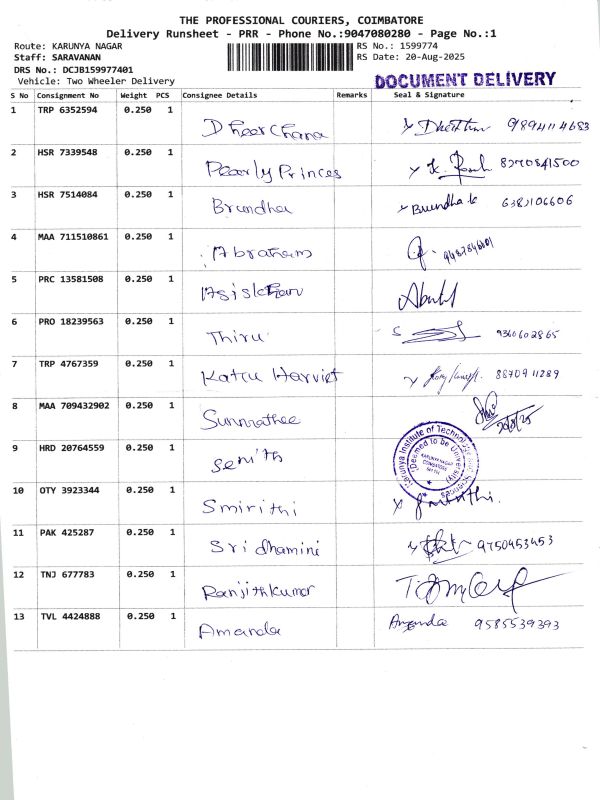 THE PROFESSIONAL COURIERS, COIMBATORE
Delivery Runsheet - PRR - Phone No.:9047080280 - Page No.:1
Route: KARUNYA NAGAR
RS No.: 1599774
Staff: SARAVANAN
RS Date: 20-Aug-2025
DRS No.: DCJB159977401
Vehicle: Two Wheeler Delivery
DOCUMENT DELIVERY
S No Consignment No Weight PCS Consignee Details Remarks Seal & Signature
1 TRP 6352594 0.250 1 Dheerchana
2 HSR 7339548 0.250 1 Pearly Princes 8270841500
3 HSR 7514084 0.250 1 Brundha Brundha 6382106606
4 MAA 711510861 0.250 1 Abraham
5 PRC 13581508 0.250 1
6 PRO 18239563 0.250 1 Thiru 9360602865
7 TRP 4767359 0.250 1 Harviet 8870911289
8 MAA 709432902 0.250 1 20/8/25
Karunya Institute of Technology and Sciences
(Deemed to be University)
KARUNYA NAGAR
COIMBATORE
9 HRD 20764559 0.250 1
10 OTY 3923344 0.250 1 Smirithi
11 PAK 425287 0.250 1 Sridhamini 9750453453
12 TNJ 677783 0.250 1 Ranjithkumar
13 TVL 4424888 0.250 1 Amanda Amanda 9585539393